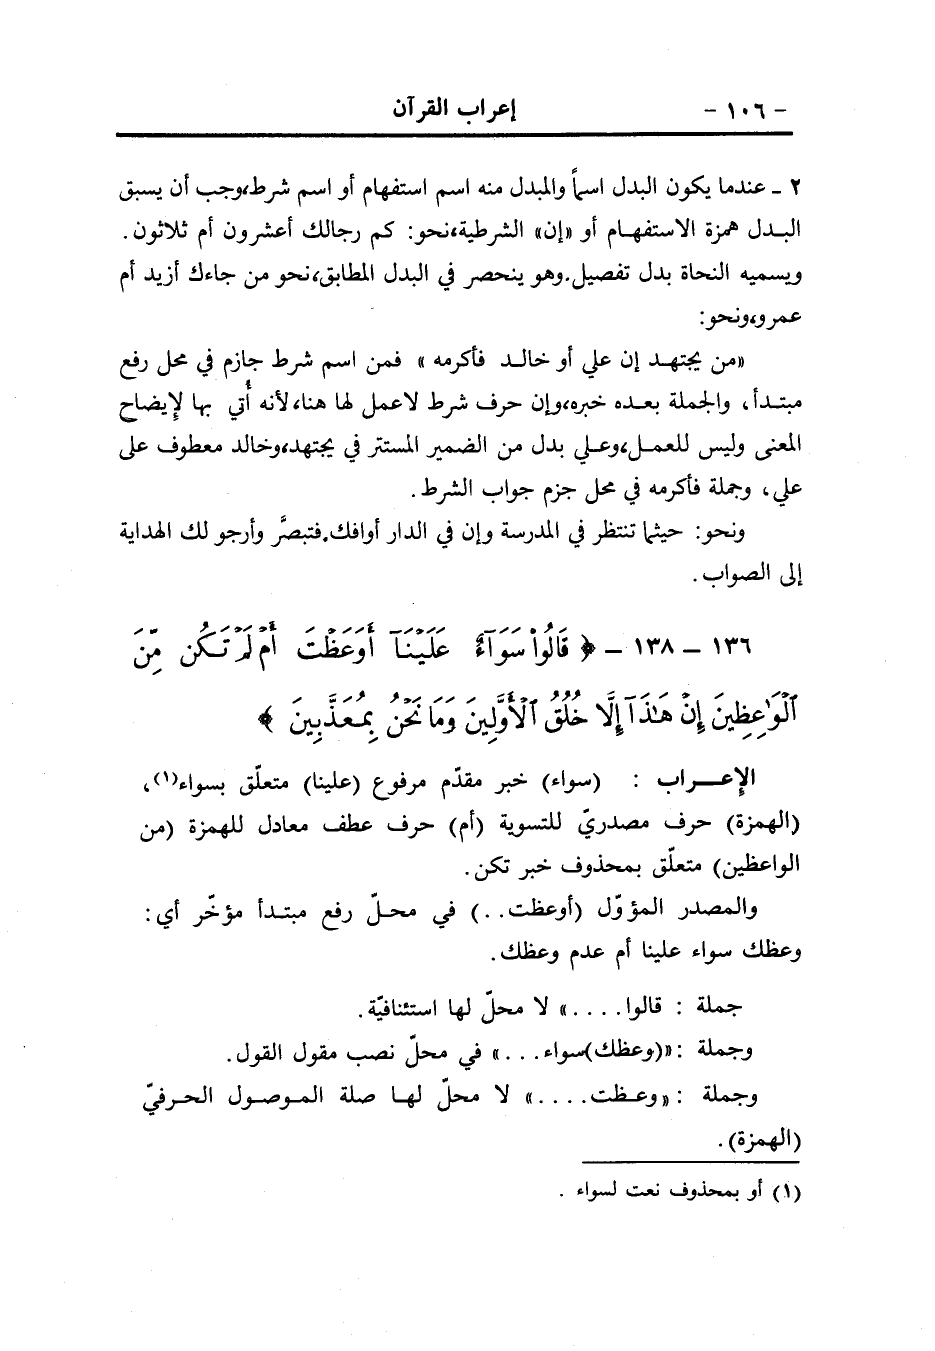 - ١٠٦ - إعراب القرآن
٢ ـ عندما يكون البدل اسماً والمبدل منه اسم استفهام أو اسم شرط،وجب أن يسبق
البدل همزة الاستفهام أو «إن» الشرطية،نحو: كم رجالك أعشرون أم ثلاثون.
ويسميه النحاة بدل تفصيل.وهو ينحصر في البدل المطابق،نحو من جاءك أزيد أم
عمرو،ونحو:
«من يجتهد إن علي أو خالد فأكرمه» فمن اسم شرط جازم في محل رفع
مبتدأ، والجملة بعده خبره،وإن حرف شرط لاعمل لها هنا،لأنه أُتي بها لإيضاح
المعنى وليس للعمل،وعلي بدل من الضمير المستتر في يجتهد،وخالد معطوف على
علي، وجملة فأكرمه في محل جزم جواب الشرط.
ونحو: حيثما تنتظر في المدرسة وإن في الدار أوافك.فتبصَّر وأرجو لك الهداية
إلى الصواب.
١٣٦ - ١٣٨ - ﴿ قَالُواْ سَوَآءٌ عَلَيْنَآ أَوَعَظْتَ أَمْ لَمْ تَكُن مِّنَ
ٱلْوَٰعِظِينَ إِنْ هَٰذَآ إِلَّا خُلُقُ ٱلْأَوَّلِينَ وَمَا نَحْنُ بِمُعَذَّبِينَ ﴾
الإعـــراب : (سواء) خبر مقدّم مرفوع (علينا) متعلّق بسواء(١)،
(الهمزة) حرف مصدريّ للتسوية (أم) حرف عطف معادل للهمزة (من
الواعظين) متعلّق بمحذوف خبر تكن.
والمصدر المؤوّل (أوعظت..) في محلّ رفع مبتدأ مؤخّر أي:
وعظك سواء علينا أم عدم وعظك.
جملة : قالوا....» لا محلّ لها استئنافيّة.
وجملة :«(وعظك)سواء...» في محلّ نصب مقول القول.
وجملة :«وعظت....» لا محلّ لها صلة الموصول الحرفيّ
(الهمزة).
(١) أو بمحذوف نعت لسواء .